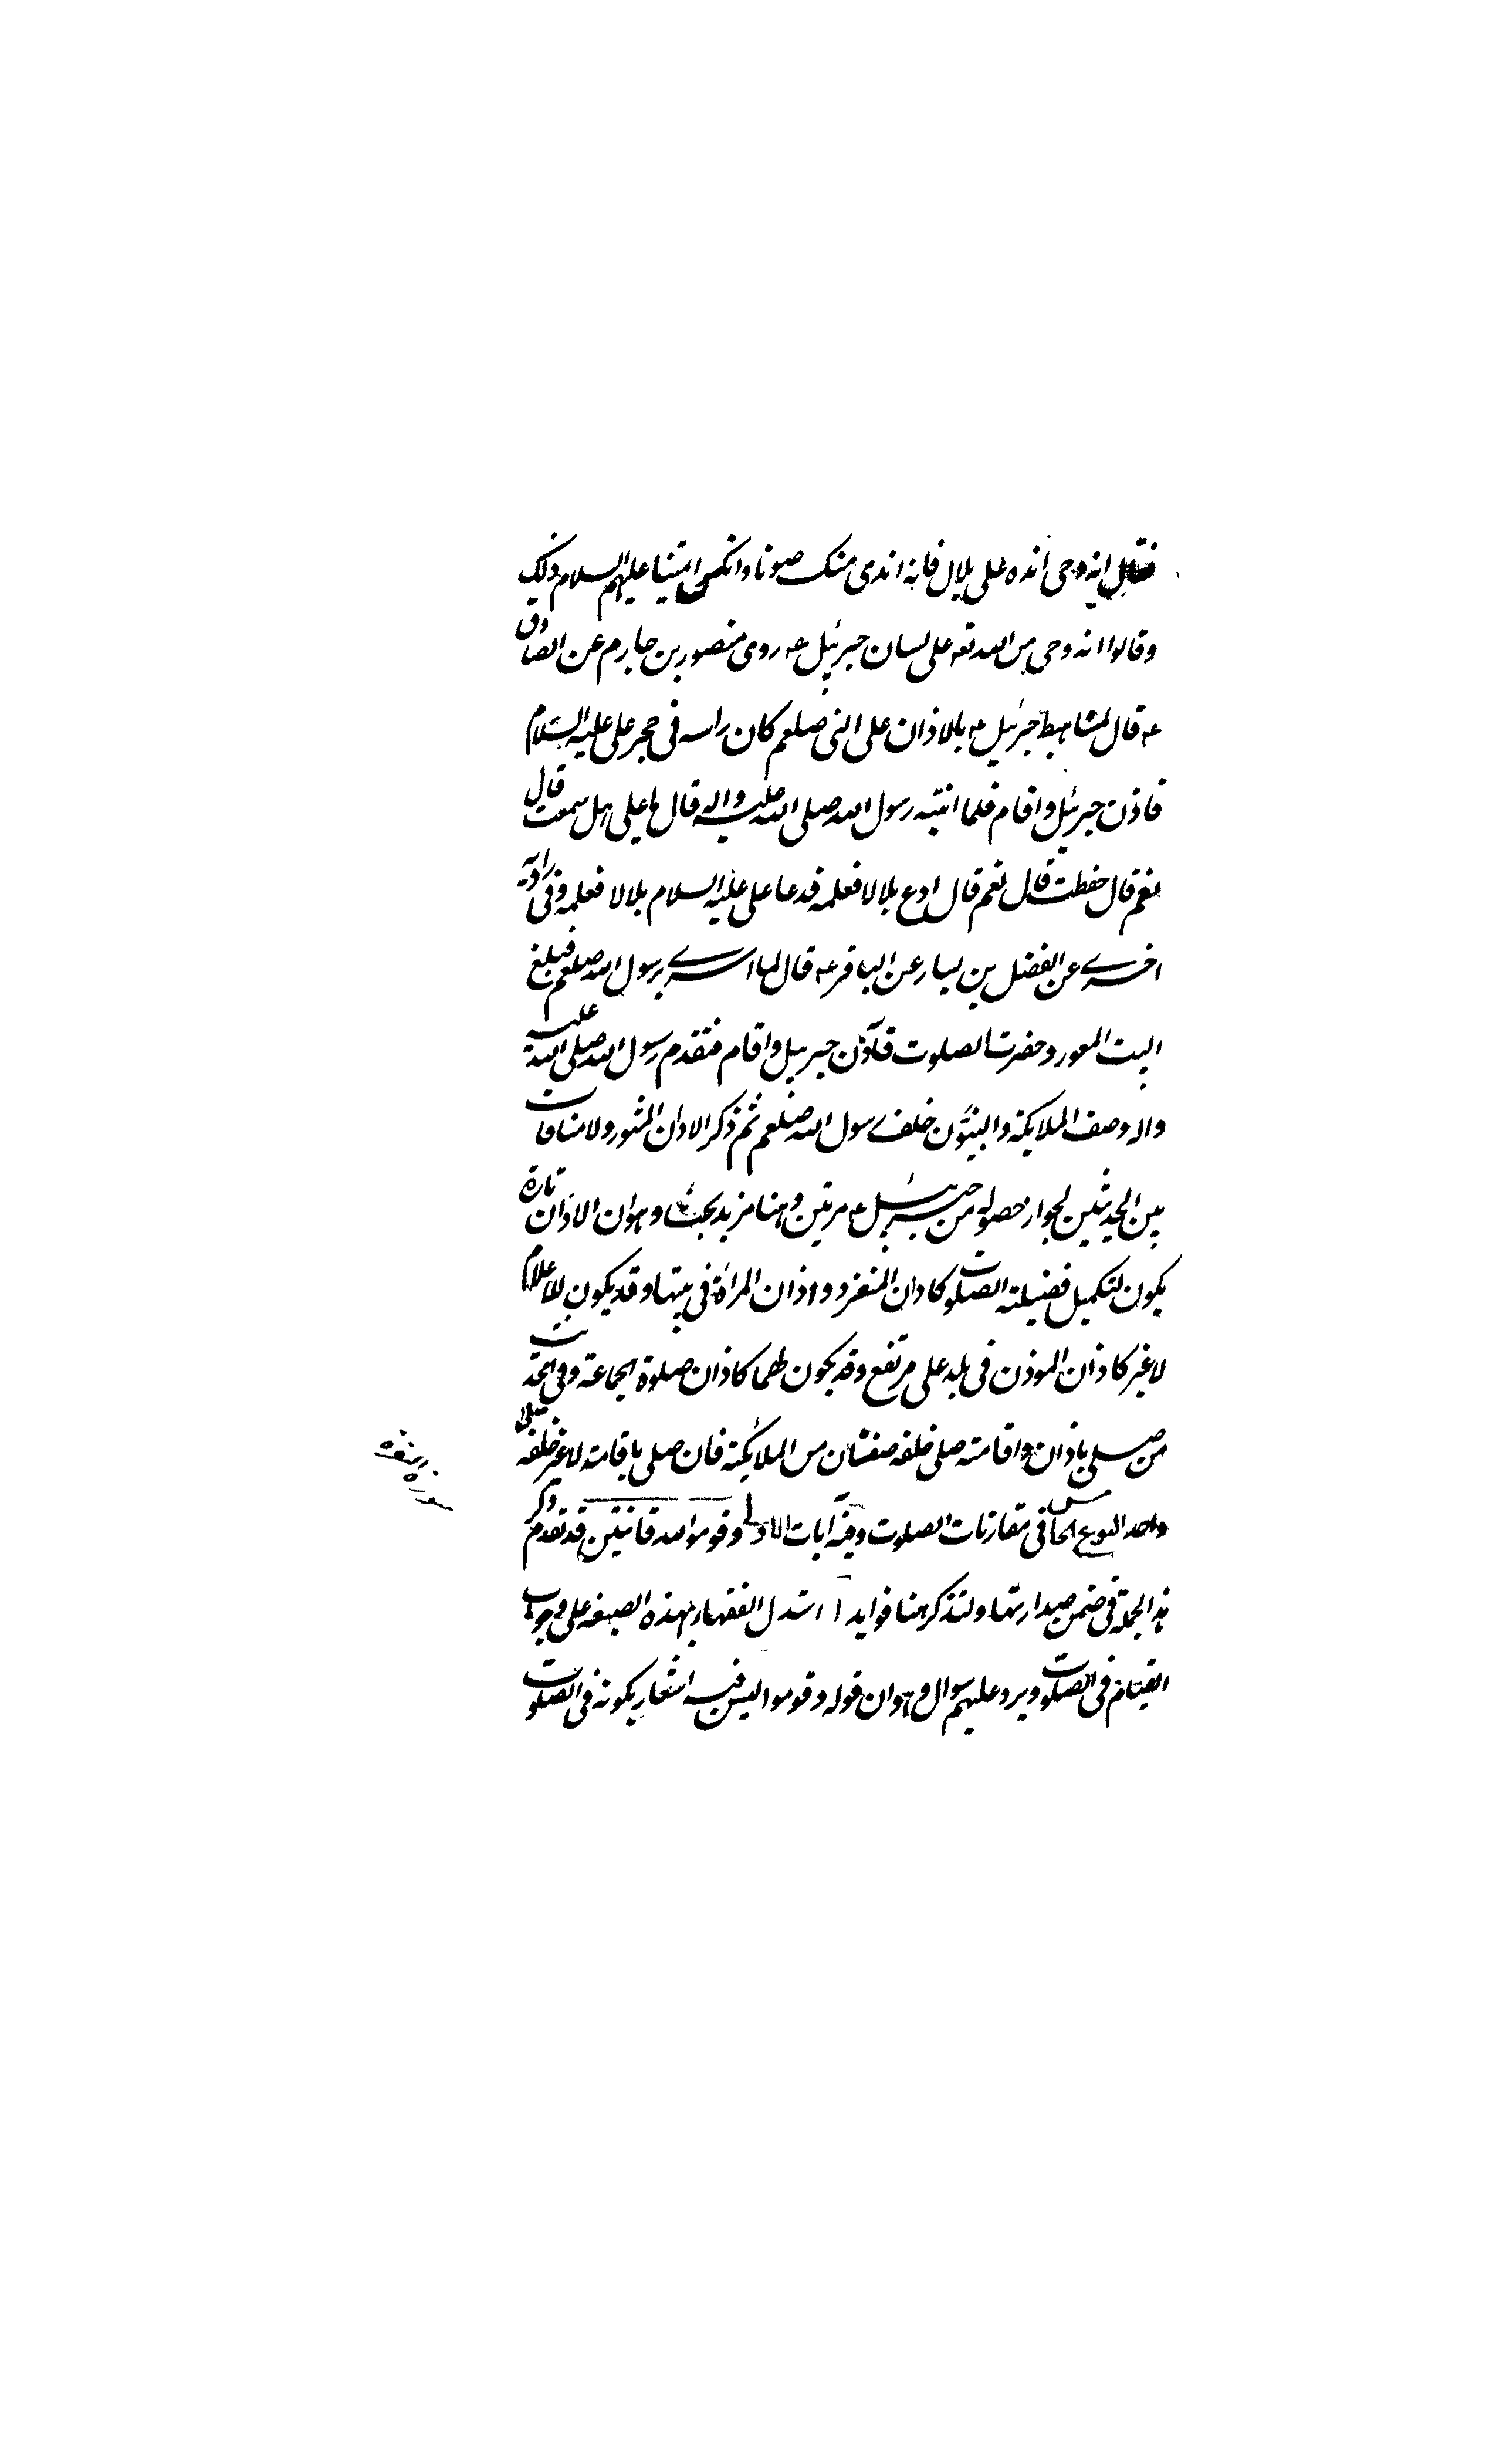 فقال انه وحى انده على بلال فانه اندى منك صوتا وانكر ائمتنا عليهم السلام ذلك
وقالوا انه وحى من الله تعه على لسان جبرئيل ع روى منصور بن حازم عن الصادق
ع قال لما هبط جبرئيل ع بالاذان على النبى صلعم كان راسه فى حجر على عليه السلام
فاذن جبرئيل واقام فلما انتبه رسول الله صلى الله عليه واله قال يا على هل سمعت قال
نعم قال حفظت قال نعم قال ادع بلالا فعلمه فدعا على عليه السلام بلالا فعلمه وفى رواية
اخرى عن الفضل بن يسار عن الباقر ع قال لما اسرى برسول الله صلعم فبلغ
البيت المعمور وحضرت الصلوت فاذن جبرئيل واقام فتقدم رسول الله صلى الله عليه
واله وصف الملايكة والنبيون خلف رسول الله صلعم ثم ذكر الاذان المشهور ولا منافات
بين الحديثين لجواز حصوله من جبرئيل ع مرتين وهنا مزيد بحث وهو ان الاذان تارة
يكون لتكميل فضيلته الصلوت كاذان المنفرد واذان المراة فى بيتها وقد يكون للاعلام
لا غير كاذان الموذن فى بلد على مرتفع وقد يكون لهما كاذان صلوة الجماعة وفى الحديث
من صلى باذان واقامته صلى خلفه صفان من الملائكة فان صلى باقامته لا غير صلى خلفه
واحد النوع الخامس فى مقارنات الصلوت وفيه آيات الاولى وقوموا لله قانتين قد تقدم ذكر
هذا الجملة فى ضمن صدر ايتها ولنذكر هنا فوايد ا استدل الفقهاء بهذه الصيغه على وجوب
القيام فى الصلوت ويرد عليهم سوال وهو ان قوله وقوموا ليس فيه اشعار بكونه فى الصلوت
سورة